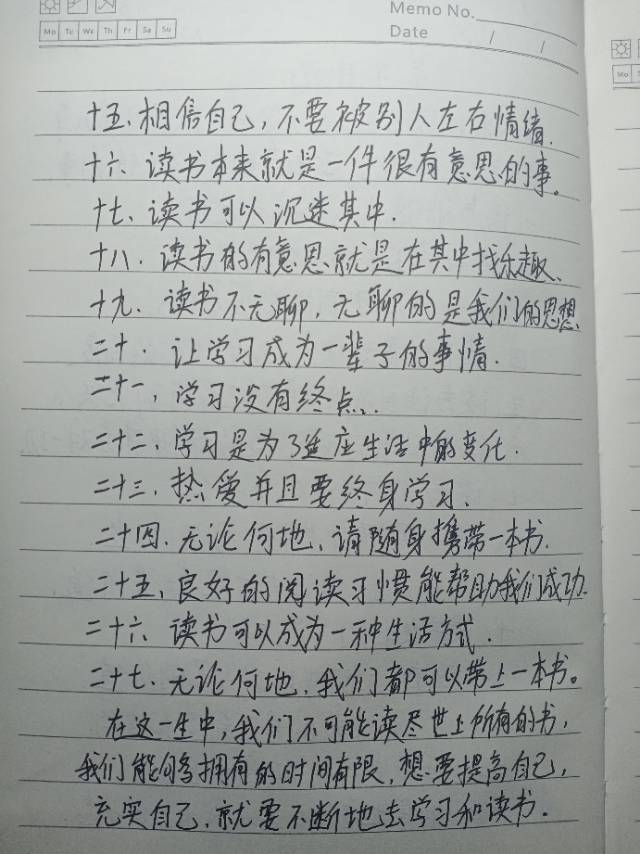 Memo No.
Mo Tu We Th Fr Sa Su
Date / /
十五、相信自己，不要被别人左右情绪.
十六、读书本来就是一件很有意思的事。
十七、读书可以沉迷其中.
十八、读书的有意思就是在其中找乐趣、
十九、读书不无聊，无聊的是我们的思想
二十、让学习成为一辈子的事情.
二十一、学习没有终点.
二十二、学习是为了适应生活中的变化.
二十三、热爱并且要终身学习.
二十四、无论何地、请随身携带一本书.
二十五、良好的阅读习惯能帮助我们成功.
二十六、读书可以成为一种生活方式.
二十七、无论何地、我们都可以带上一本书。
在这一生中，我们不可能读尽世上所有的书，
我们能够拥有的时间有限，想要提高自己，
充实自己、就要不断地去学习和读书.
Mo